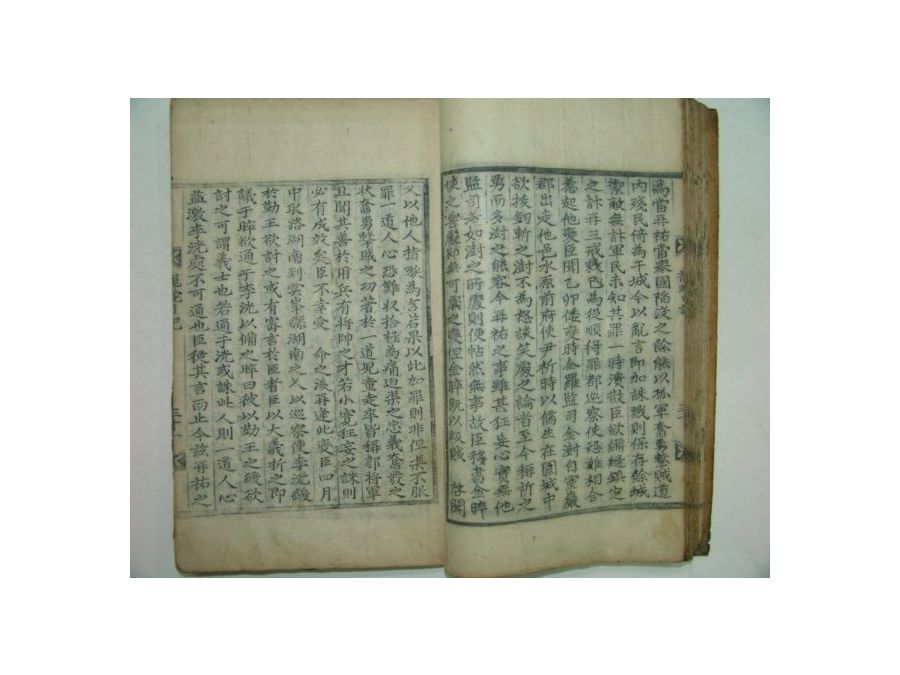 為當再祐當擧國陷沒之餘能以孤軍奮勇擊賊道
內殘民倚為干城今以亂言即加誅戮則保存餘城
禦敵無計軍民未知其罪一時潰散臣欲彌縫鎭定
之計再三戒飭已為從順得罪都巡察使恐難相合
卷起他變臣聞乙卯倭變時全羅監司金澍自靈巖
郡出走他邑水原前府使尹祈時以儒生在圍城中
欲拔劒斬之澍不為怒談笑處之論者至今稱祈之
勇而多澍之能容今再祐之事雖甚狂妄心實無他
監司若如澍之時處則便帖然無事故臣移書金睟
使之善處即無可虞之變但金睟旣以叛賊 啓聞
又以他人指嗾為言若果以此加罪則非但渠不服
罪一道人心恐難收拾極為痛迫渠之忠義奮發之
狀奮勇擊賊之功著於一道兒童走卒皆稱郭將軍
且聞其善於用兵有將帥之才若小寬狂妄之誅則
必有成效矣臣不幸受 命之後再逢此變臣四月
中取路湖南到雲峯縣湖南之人以巡察使李洸緩
於勤王欲討之或有審言於臣者臣以大義折之即
議于睟欲通于李洸以備之睟曰彼以勤王之緩欲
討之可謂義士也若通于洸或誅此人則一道人心
益激李洸處不可通也臣從其言而止今玆再祐之
龍蛇日記
三十一